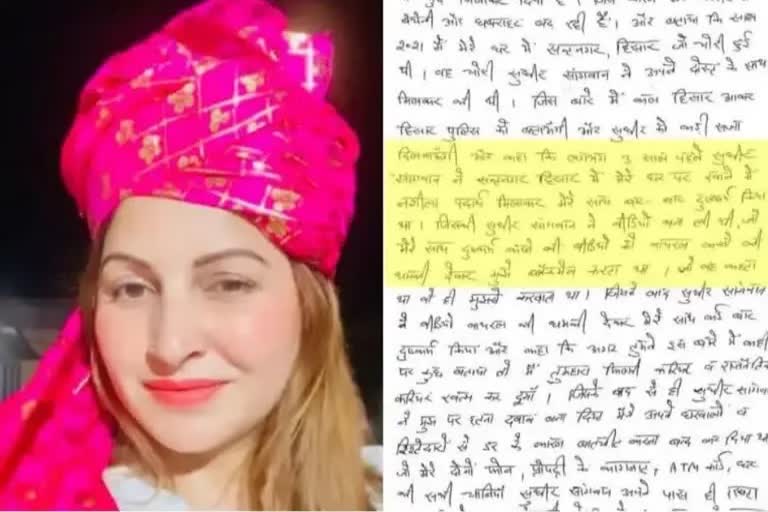 बेचैनी और घबराहट बढ़ रही है। और बताया कि साल
2021 में मेरे घर में सन्तनगर, हिसार जो चोरी हुई
थी। वह चोरी सुधीर सांगवान ने अपने दोस्त के साथ
मिलकर की थी। जिस बारे में कल हिसार आकर
हिसार पुलिस को बताऊँगी और सुधीर को कड़ी सजा
दिलवाऊँगी और कहा कि लगभग 3 साल पहले सुधीर
सांगवान ने सन्तनगर हिसार में मेरे घर पर खाने में
नशीला पदार्थ मिलाकर मेरे साथ बार-बार दुष्कर्म किया
था। जिसकी सुधीर सांगवान ने वीडियो बना ली थी, जो
मेरे साथ दुष्कर्म करने की वीडियो को वायरल करने की
धमकी देकर मुझे ब्लैकमेल करता था। जो वह कहता
था वो ही मुझसे करवाता था। जिसके बाद सुधीर सांगवान
ने वीडियो वायरल की धमकी देकर मेरे साथ कई बार
दुष्कर्म किया और कहा कि अगर तुमने इस बारे में कहीं
पर कुछ बताया तो मैं तुम्हारा फिल्मी करियर व राजनैतिक
करियर खत्म कर दूंगा। जिसके बाद से ही सुधीर सांगवान
ने मुझ पर इतना दबाव बना दिया मैंने अपने घरवालों व
रिश्तेदारों से डर के कारण बातचीत करना बन्द कर दिया था
जो मेरे दोनों फोन, प्रॉपर्टी के कागजात, ATM कार्ड, घर
की सभी चाबियां सुधीर सांगवान अपने पास ही रखता